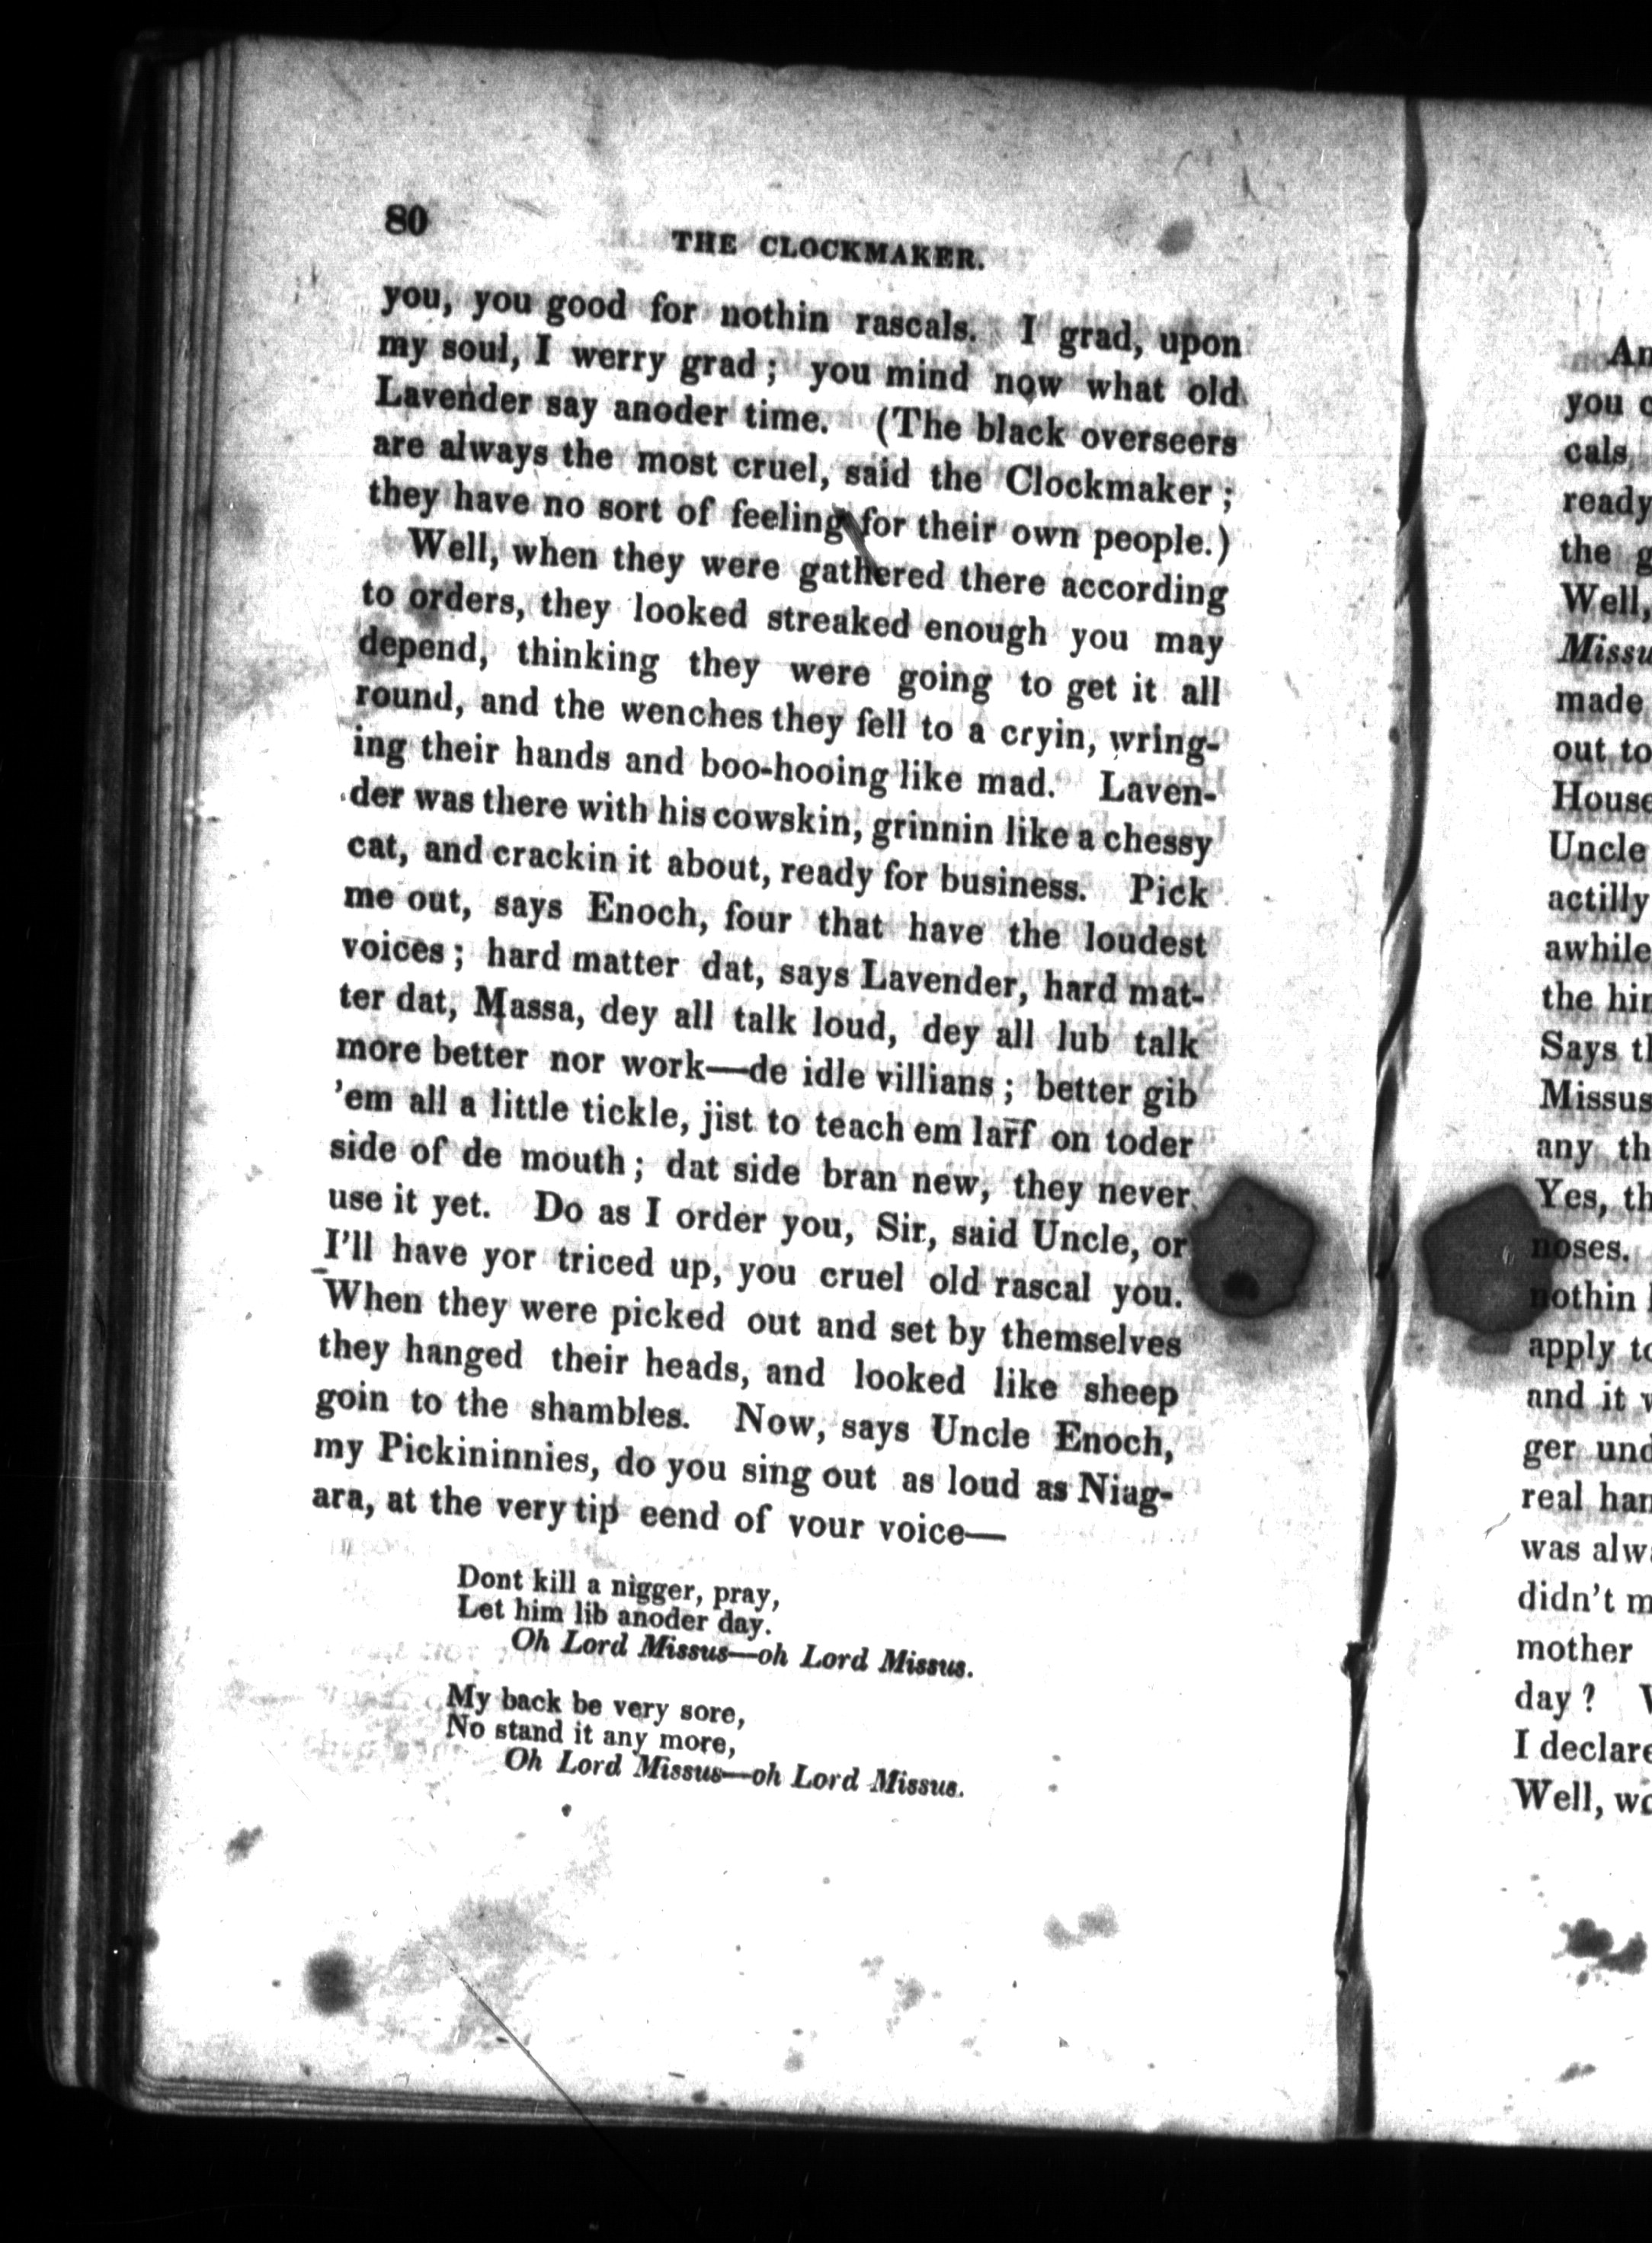 80
THE CLOCKMAKER.
you, you good for nothin rascals. I grad, upon
my soul, I werry grad; you mind now what old
Lavender say anoder time. (The black overseers
are always the most cruel, said the Clockmaker;
they have no sort of feeling for their own people.)
Well, when they were gathered there according
to orders, they looked streaked enough you may
depend, thinking they were going to get it all
round, and the wenches they fell to a cryin, wring-
ing their hands and boo-hooing like mad. Laven-
der was there with his cowskin, grinnin like a chessy
cat, and crackin it about, ready for business. Pick
me out, says Enoch, four that have the loudest
voices; hard matter dat, says Lavender, hard mat-
ter dat, Massa, dey all talk loud, dey all lub talk
more better nor work—de idle villians; better gib
'em all a little tickle, jist to teach em larf on toder
side of de mouth; dat side bran new, they never
use it yet. Do as I order you, Sir, said Uncle, or
I'll have yor triced up, you cruel old rascal you.
When they were picked out and set by themselves
they hanged their heads, and looked like sheep
goin to the shambles. Now, says Uncle Enoch,
my Pickininnies, do you sing out as loud as Niag-
ara, at the very tip eend of your voice—
Dont kill a nigger, pray,
Let him lib anoder day.
Oh Lord Missus—oh Lord Missus.
My back be very sore,
No stand it any more,
Oh Lord Missus—oh Lord Missus.
An
you c
cals
ready
the g
Well,
Missu
made
out to
House
Uncle
actilly
awhile
the hin
Says th
Missus
any th
Yes, th
noses.
nothin
apply to
and it w
ger und
real han
was alwa
didn't m
mother
day? W
I declare
Well, wo